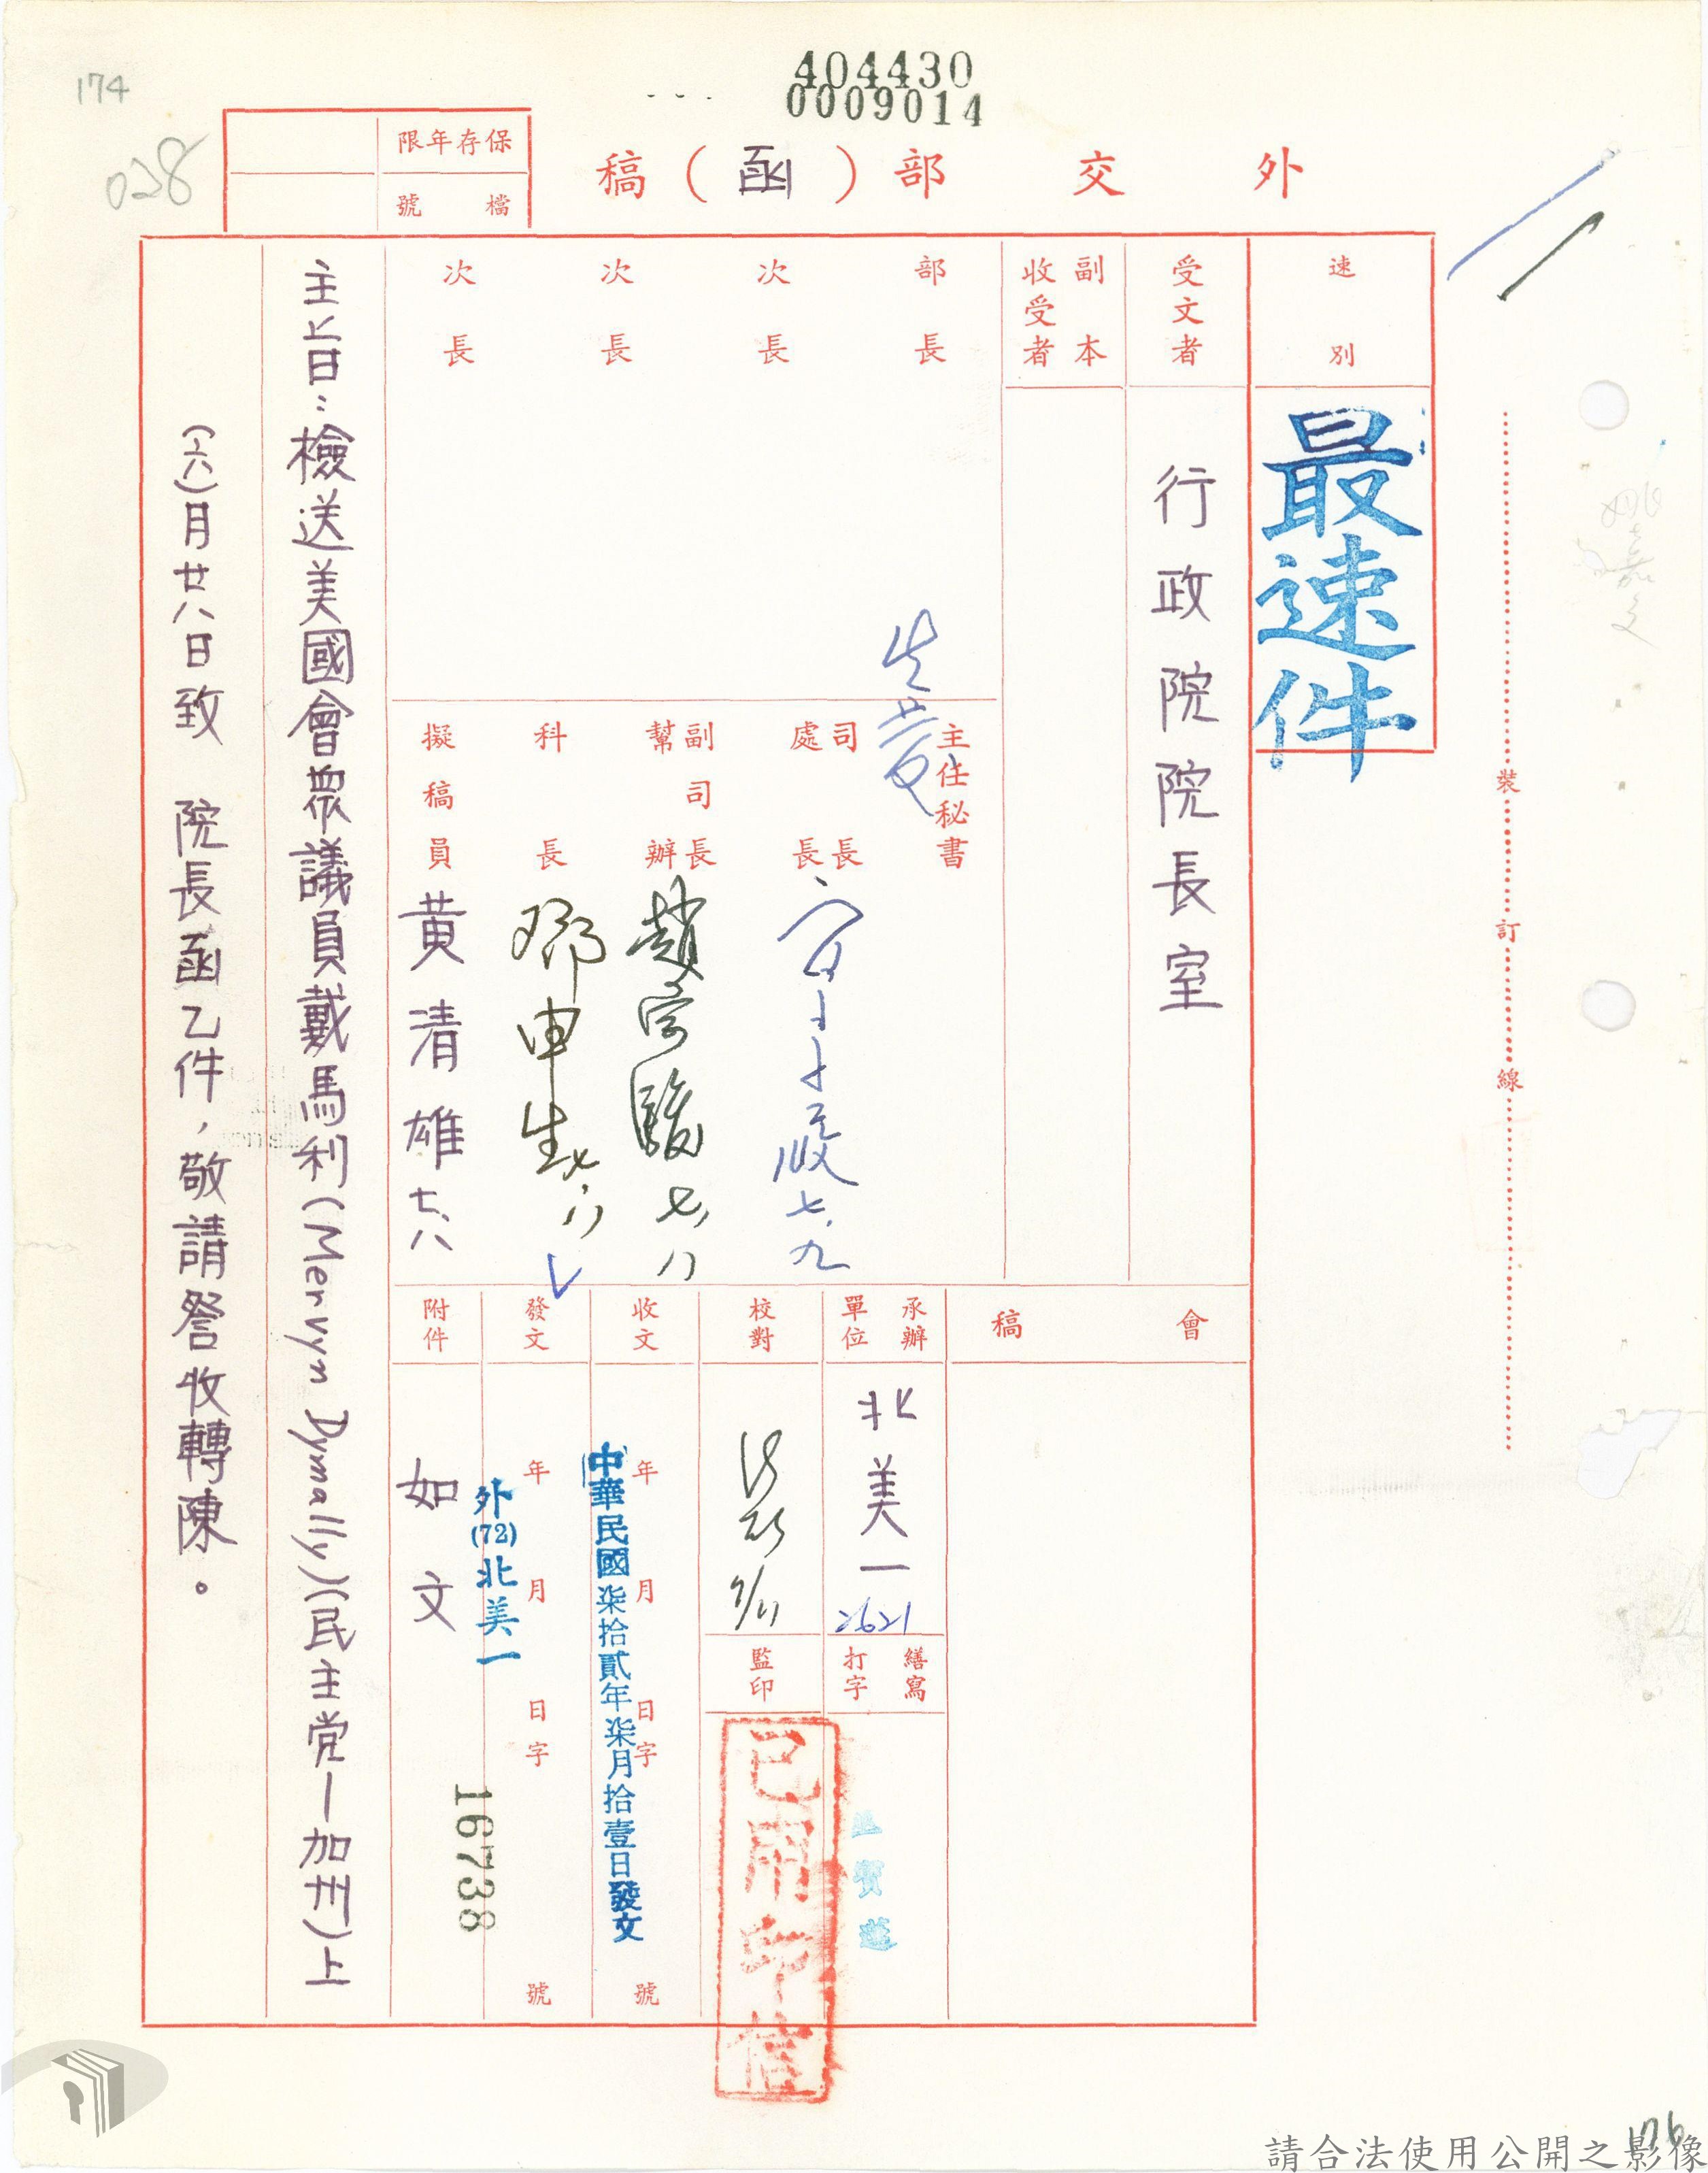 174
028
404430
0009014
外交部（函）稿
保存年限
檔號
速別
最速件
受文者
行政院院長室
副本收受者
部長
次長
次長
次長
主任秘書
司長
處長
副司長
幫辦
趙
七、八
七、九
科長
鄧申生
七、八
擬稿員
黃清雄
七、八
會稿
承辦單位
北美一
2621
繕寫
打字
校對
監印
已用印信
收文
年月日字號
中華民國柒拾貳年柒月拾壹日發文
發文
年月日字號
外(72)北美一
16738
附件
如文
主旨：檢送美國會眾議員戴馬利(Mervyn Dymally)(民主党—加州)上
(六八)月廿八日致 院長函乙件，敬請詧收轉陳。
裝訂線
176
請合法使用公開之影像